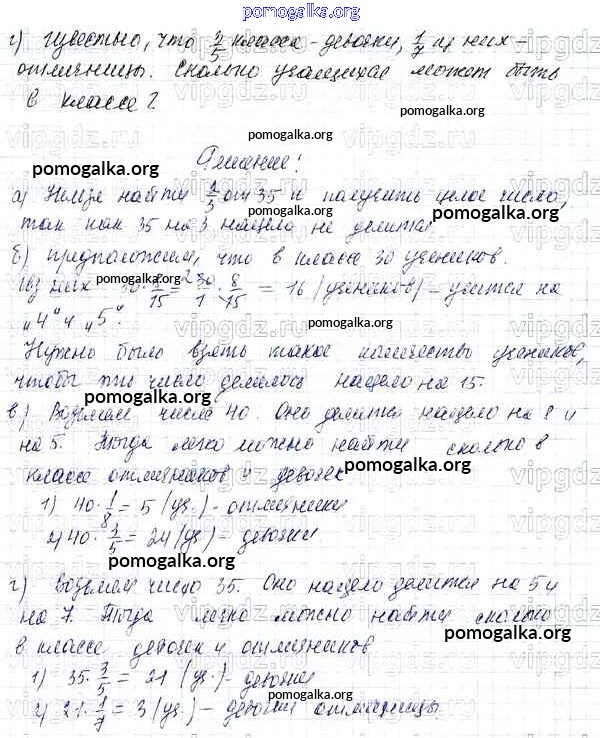 pomogalka.org
г) известно, что 3/5 класса - девочки, 1/7 из них -
отличницы. Сколько учащихся может быть
в классе?
pomogalka.org
Решение:
pomogalka.org
а) Нельзя найти 2/3 от 35 и получить целое число,
так как 35 на 3 нацело не делится.
pomogalka.org
б) предположим, что в классе 30 учеников.
Из них 30 · 8/15 = 30/1 · 8/15 = 16 (учеников) - учится на
pomogalka.org
„4" и „5".
pomogalka.org
Нужно было взять такое количество учеников,
чтобы это число делилось нацело на 15.
pomogalka.org
в) Возьмем число 40. Оно делится нацело на 8 и
на 5. Тогда легко можно найти сколько в
классе отличников и девочек
pomogalka.org
1) 40 · 1/8 = 5 (уч.) - отличники
2) 40 · 3/5 = 24 (уч.) - девочки
pomogalka.org
г) Возьмем число 35. Оно нацело делится на 5 и
на 7. Тогда легко можно найти сколько
в классе девочек и отличников
pomogalka.org
1) 35 · 3/5 = 21 (уч.) - девочки
pomogalka.org
2) 21 · 1/7 = 3 (уч.) - девочки отличницы
pomogalka.org
vipgdz.ru